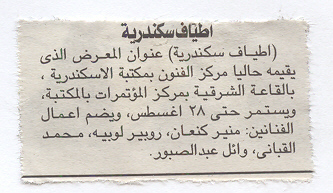 اطياف سكندرية
(اطياف سكندرية) عنوان المعرض الذى
يقيمه حاليا مركز الفنون بمكتبة الاسكندرية ،
بالقاعة الشرقية بمركز المؤتمرات بالمكتبة،
ويستمر حتى ٢٨ اغسطس، ويضم اعمال
الفنانين: منير كنعان، روبير لوبيه، محمد
القبانى، وائل عبدالصبور.